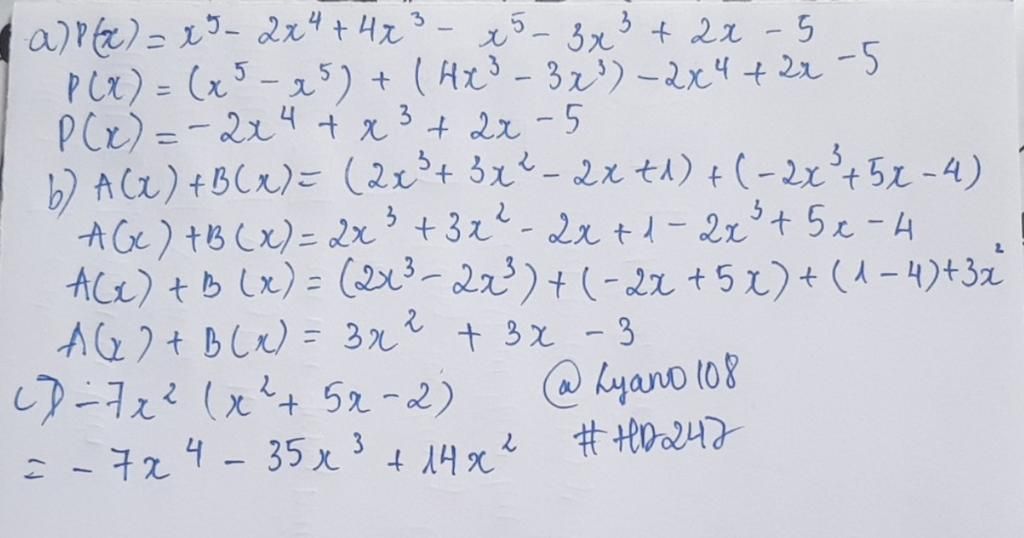 a) P(x) = x⁵ - 2x⁴ + 4x³ - x⁵ - 3x³ + 2x - 5
P(x) = (x⁵ - x⁵) + (4x³ - 3x³) - 2x⁴ + 2x - 5
P(x) = -2x⁴ + x³ + 2x - 5
b) A(x) + B(x) = (2x³ + 3x² - 2x + 1) + (-2x³ + 5x - 4)
A(x) + B(x) = 2x³ + 3x² - 2x + 1 - 2x³ + 5x - 4
A(x) + B(x) = (2x³ - 2x³) + (-2x + 5x) + (1 - 4) + 3x²
A(x) + B(x) = 3x² + 3x - 3
c) -7x² (x² + 5x - 2)
= -7x⁴ - 35x³ + 14x²
@Lyano108
#HD247